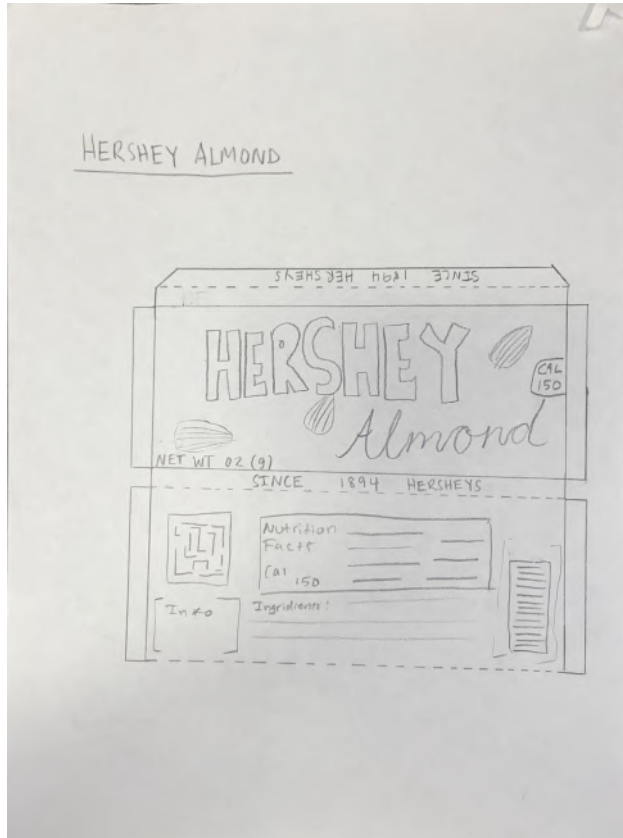 HERSHEY ALMOND
SINCE 1894 HERSHEYS
HERSHEY
CAL
150
Almond
NET WT 02 (g)
SINCE 1894 HERSHEYS
Nutrition
Facts
Cal
150
Info
Ingridients: